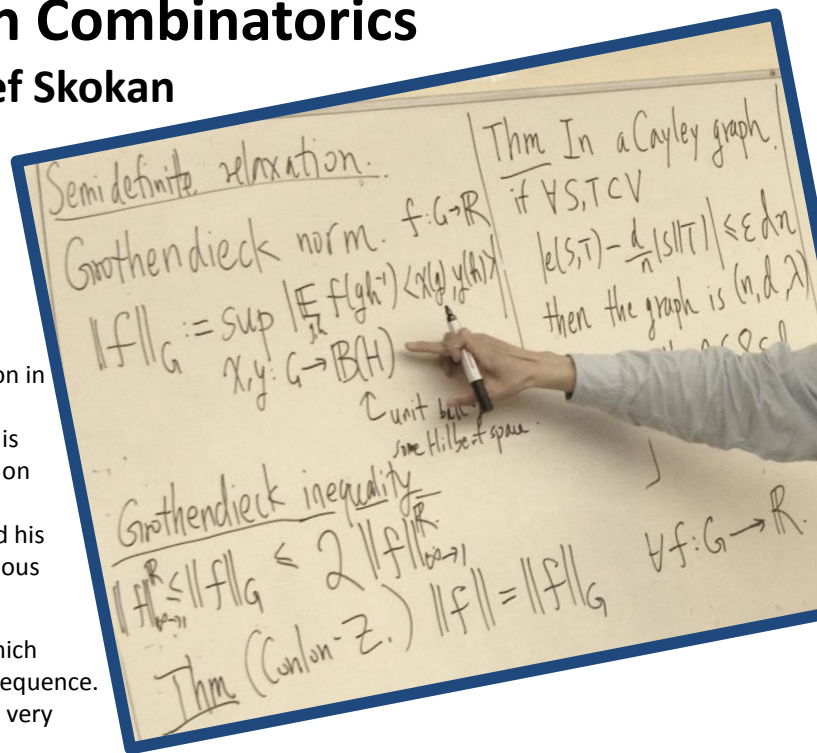 n Combinatorics
ef Skokan
on in
is
on
d his
ous
hich
equence.
very
Semidefinite relaxation.
Grothendieck norm. f:G→ℝ
‖f‖_G := sup |𝔼_{g,h} f(gh⁻¹)⟨x(g),y(h)⟩|
x,y: G→B(H)
unit ball
some Hilbert space.
Grothendieck inequality
‖f‖^ℝ_{∞→1} ≤ ‖f‖_G ≤ 2‖f‖^ℝ_{∞→1}
Thm (Conlon-Z.) ‖f‖ = ‖f‖_G ∀f:G→ℝ.
Thm In a Cayley graph.
if ∀S,T⊂V
|e(S,T) − d/n |S||T|| ≤ εdn
then the graph is (n,d,λ)